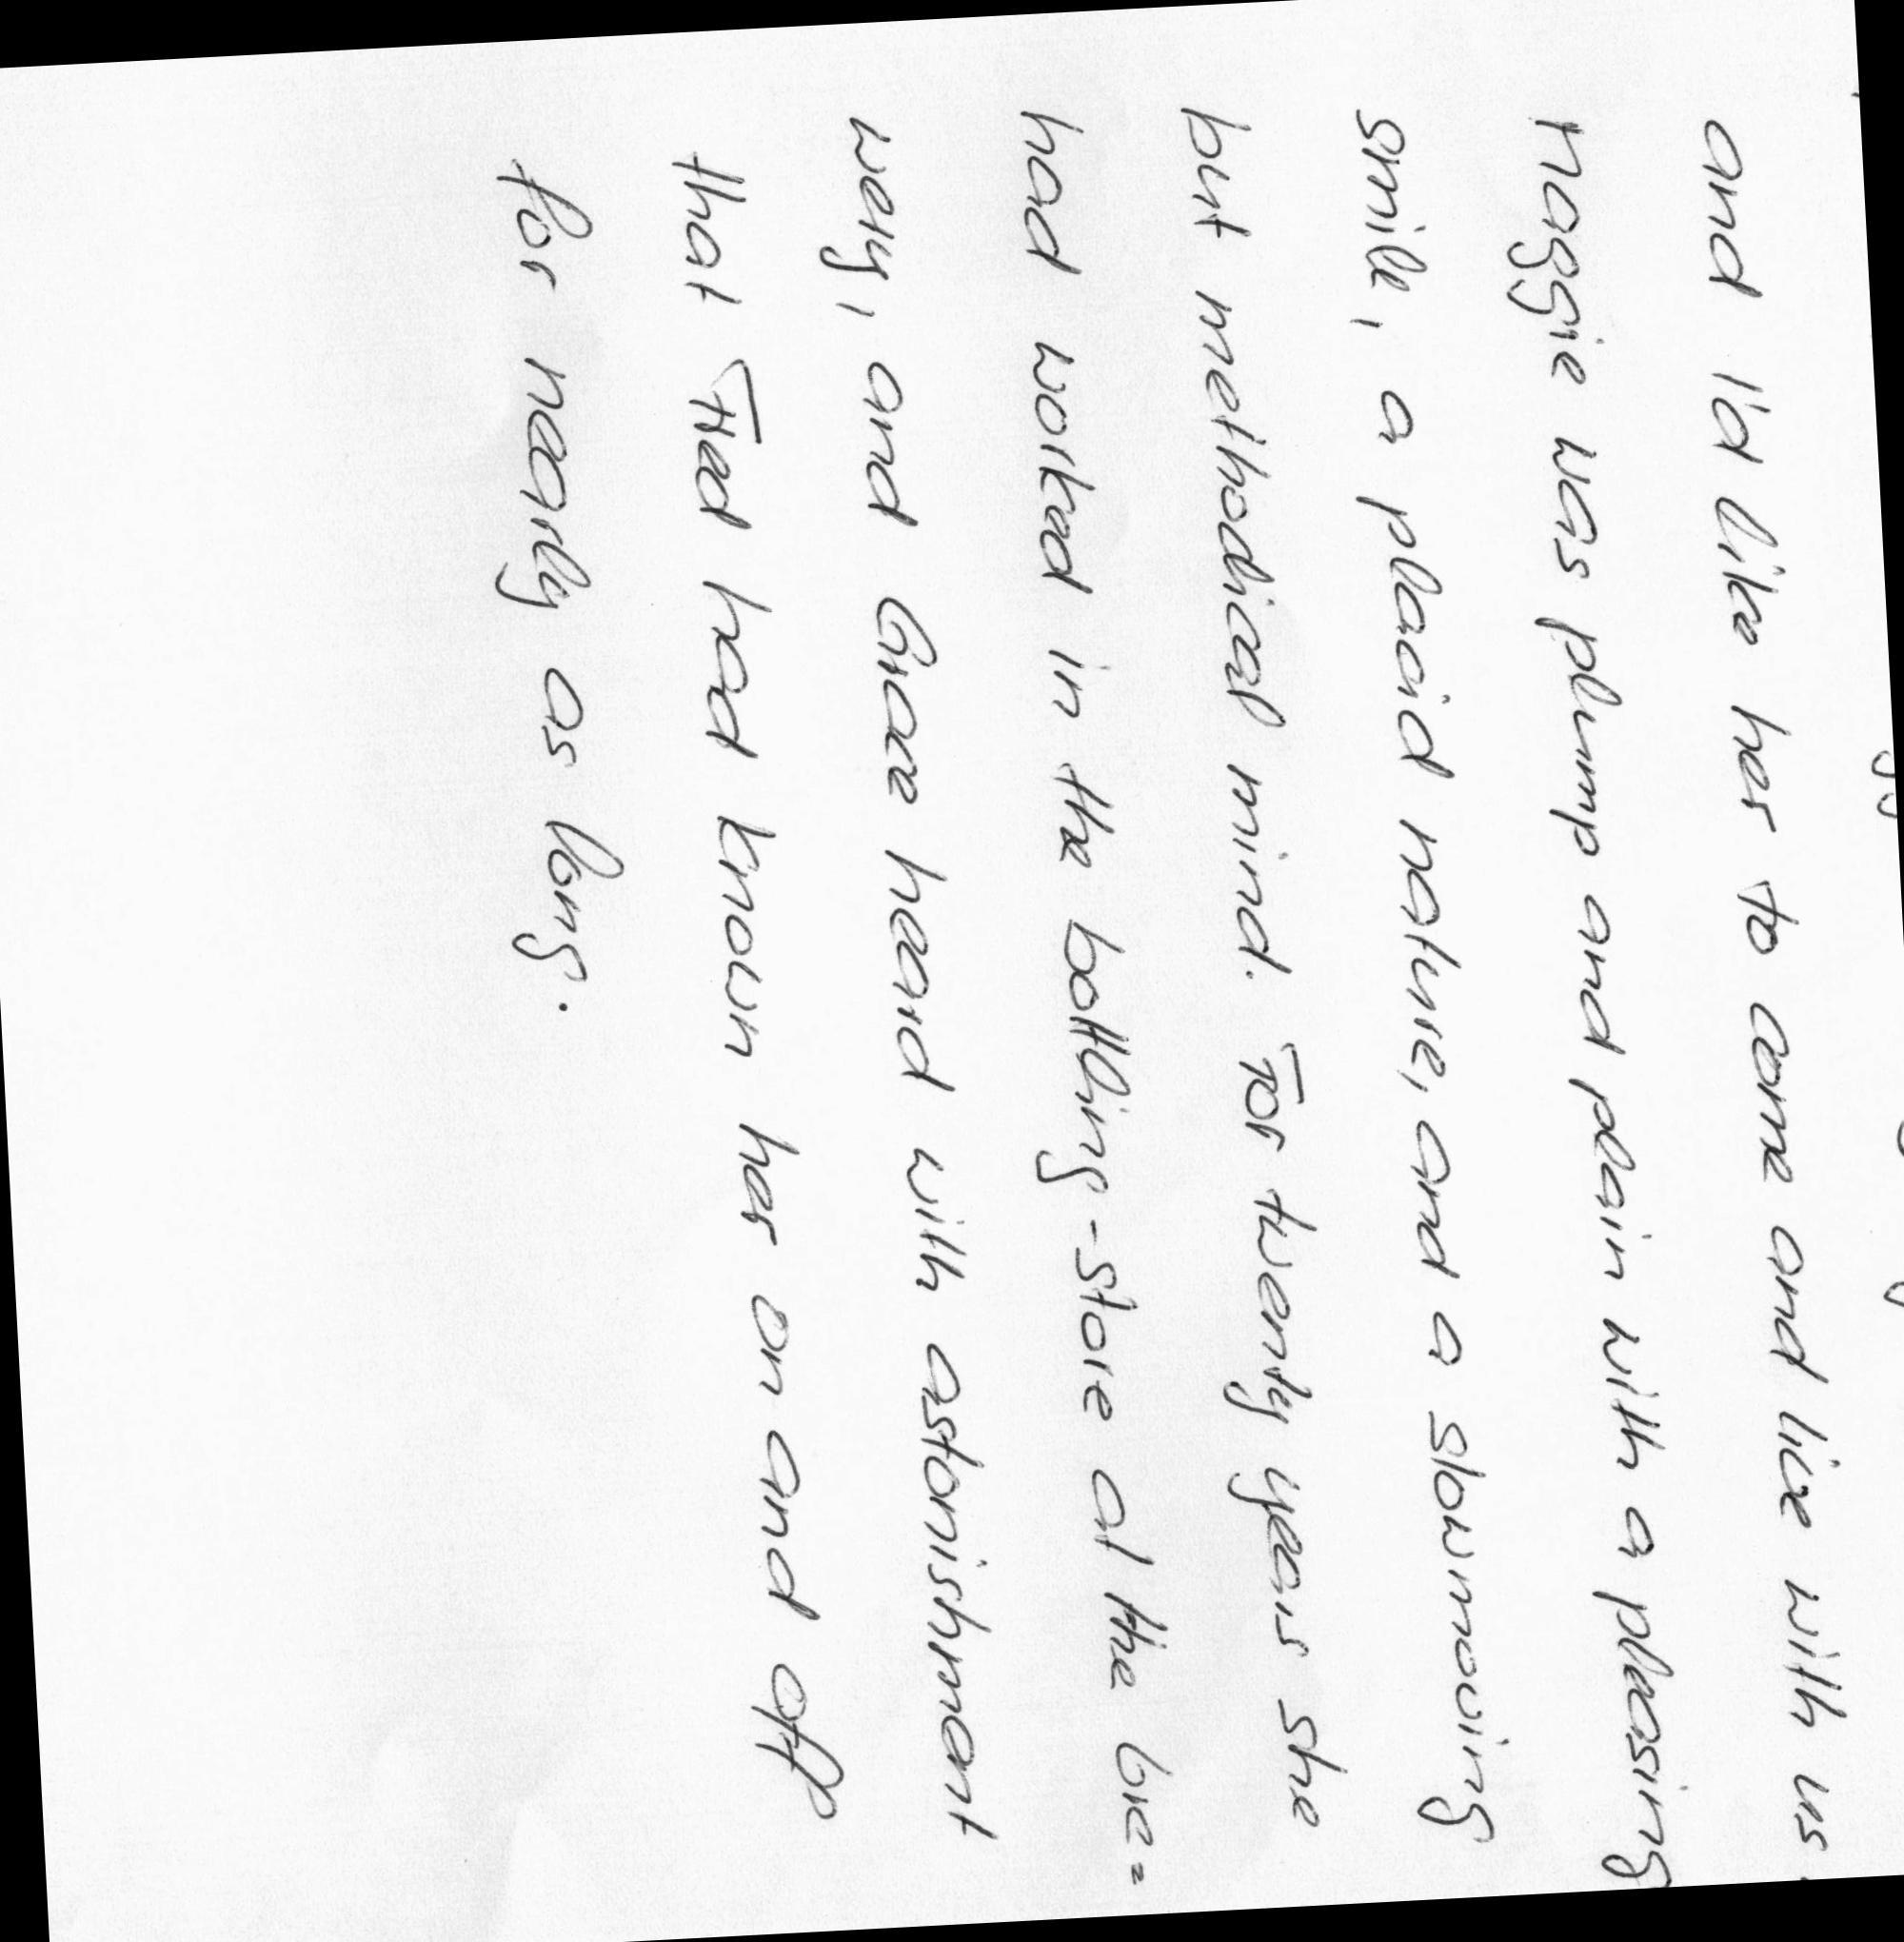 and I'd like her to come and live with us.
Maggie was plump and plain with a pleasing
smile, a placid nature, and a slowmoving
but methodical mind. For twenty years she
had worked in the bottling-store at the bre=
wery, and Grace heard with astonishment
that Fred had known her on and off
for nearly as long.